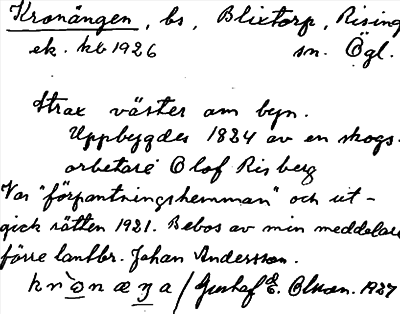 Kronängen, bs, Blixtorp, Rising
ek. kb 1926 sn. Ögl.
Strax väster om byn.
Uppbygdes 1824 av en skogs-
arbetare Olof Risberg
Var "förpantningshemman" och ut-
gick rätten 1921. Bebos av min meddelare
förre lantbr. Johan Andersson.
Gustaf E. Olsson. 1927